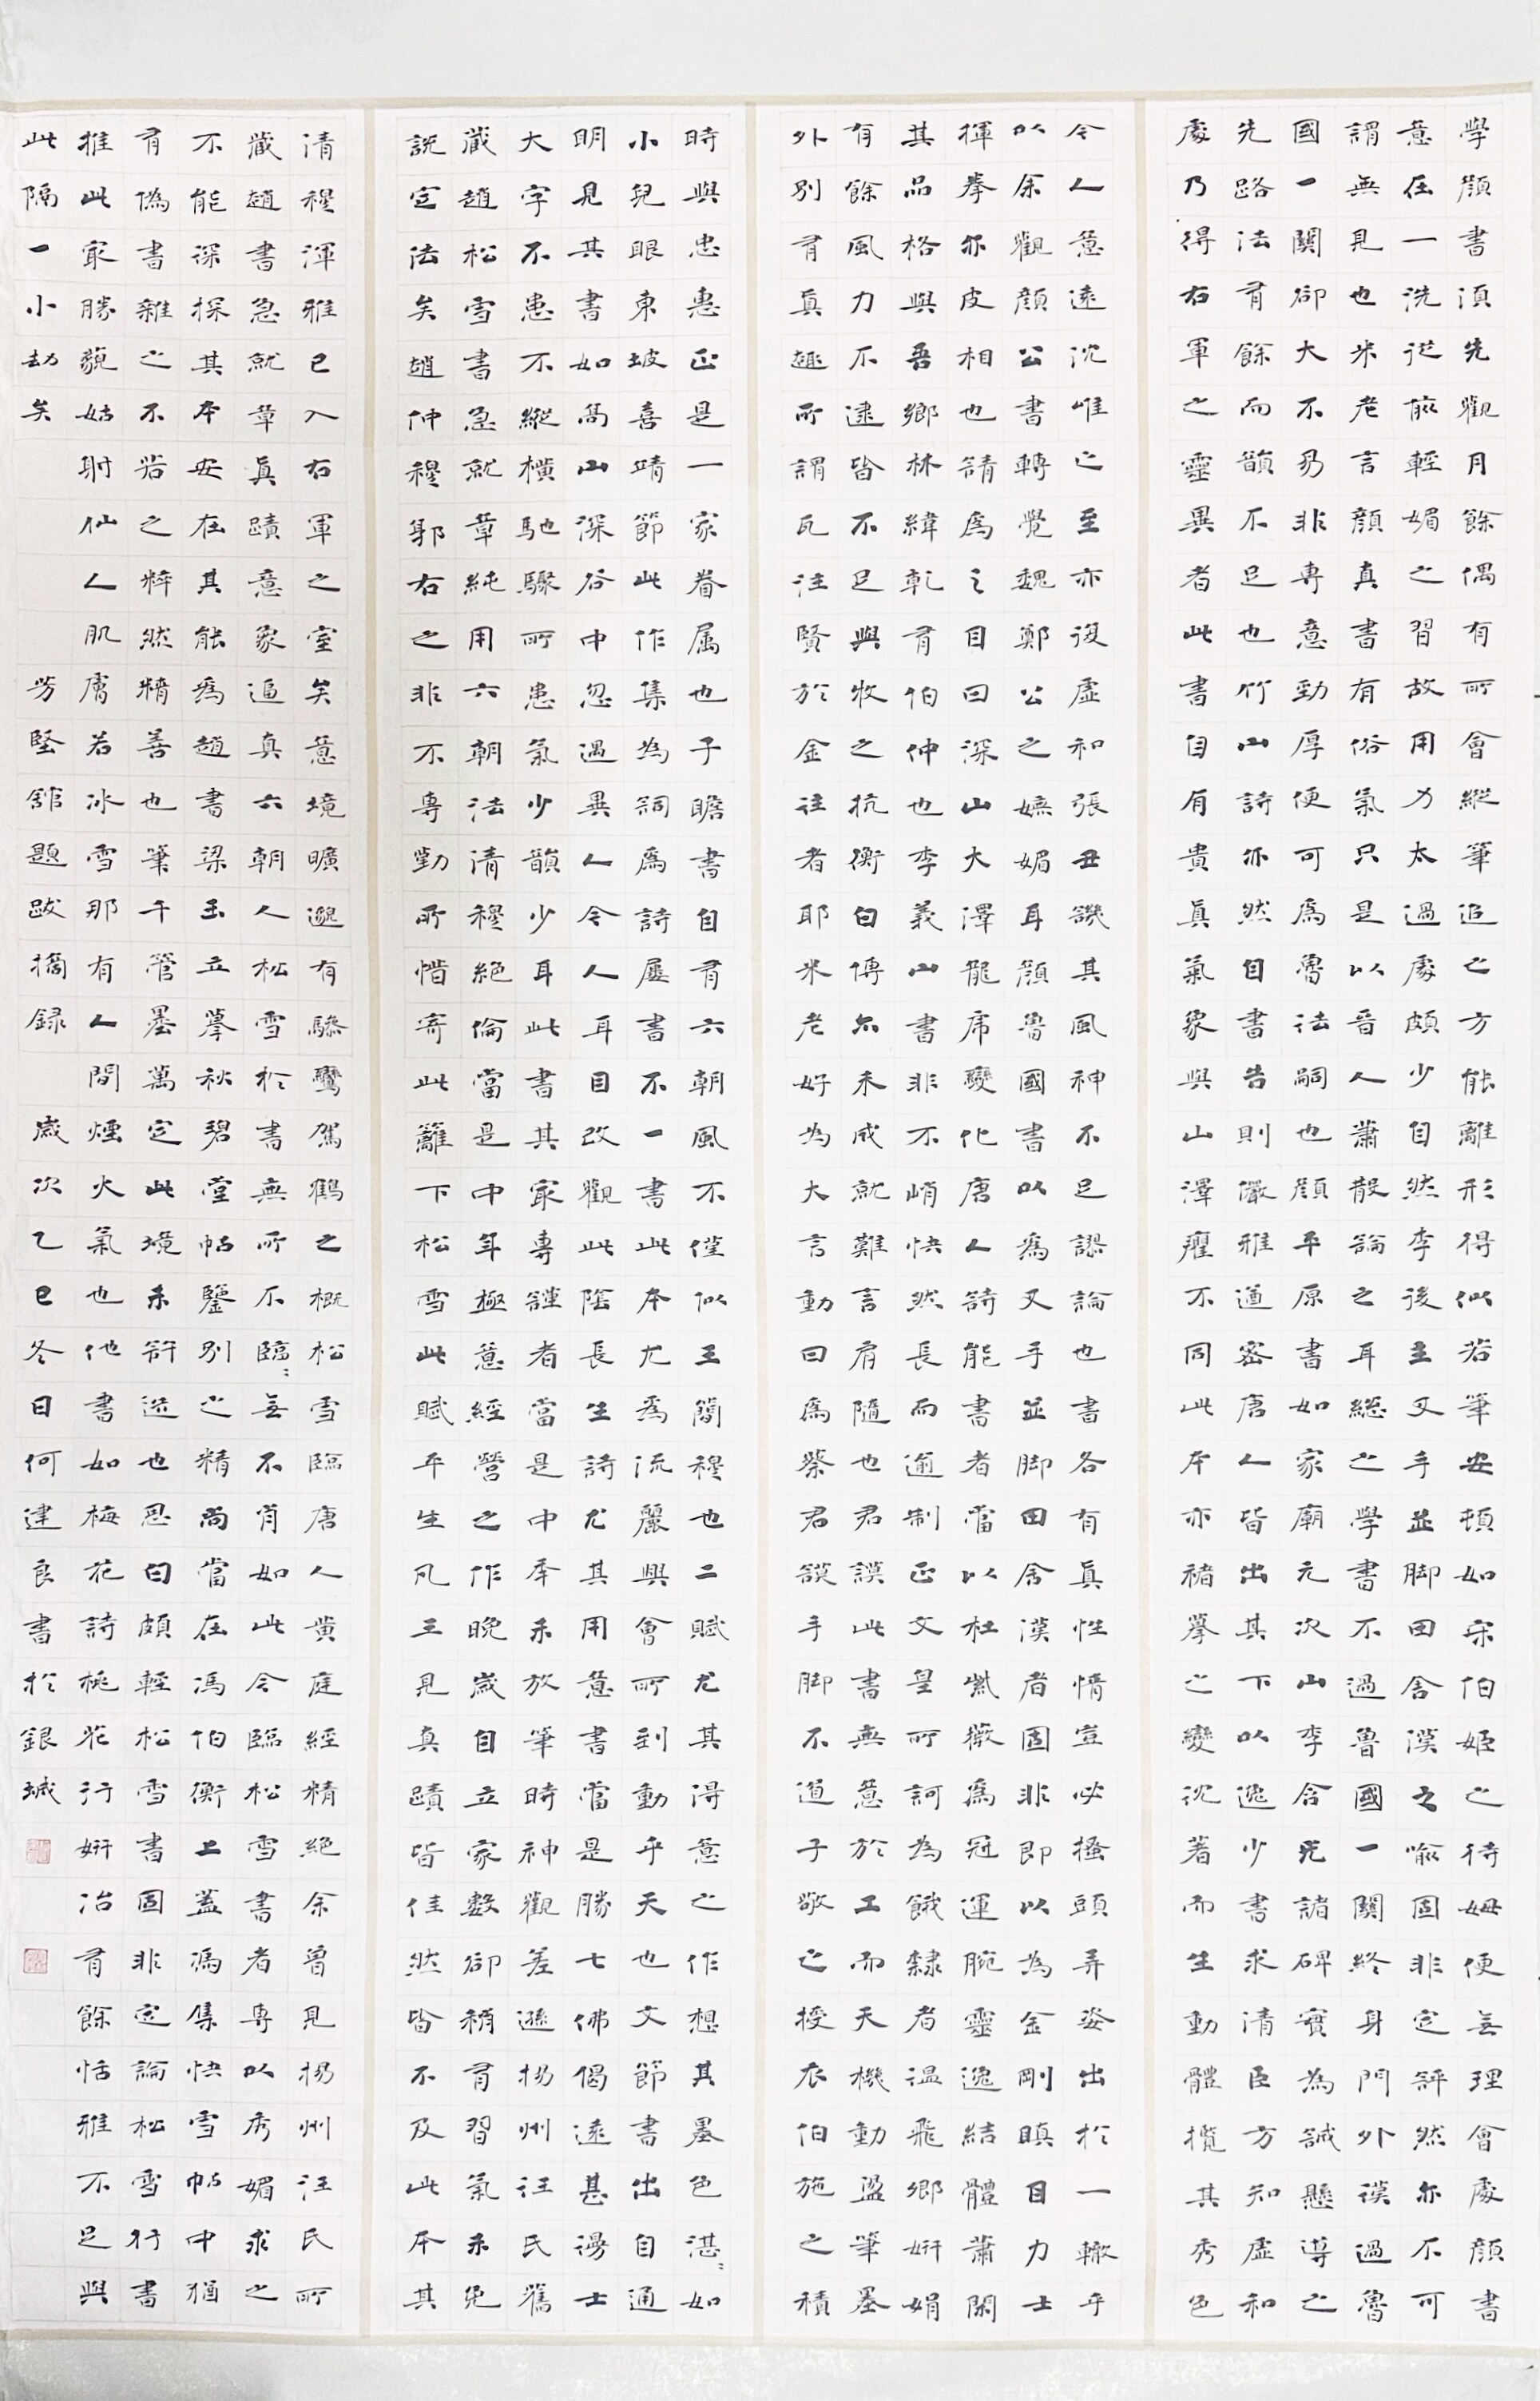 學顏書須先觀月餘偶有所會縱筆追之方能離形得似若筆安頓如宋伯姬之待姆便無理會處顏書
意在一洗從前輕媚之習故用力太過處頗少自然李後主叉手並脚田舍漢之喻固非定評然亦不可
謂無見也米老言顏真書有俗氣只是以晉人蕭散論之耳總之學書不過魯國一關終身門外漢過魯
國一關卻大不易非專意勁厚便可然為魯法嗣也顏平原書如家廟元次山李含光諸碑實為誠懸導之
先路法有餘而韻不足也竹山詩亦然自書告則儼雅遒密唐人皆出其下以逸少書求清臣方知虛和
處乃得右軍之靈異者此書自有貴真氣象與山澤癯不同此本亦褚摹之變沈著而生動體攬其秀色
令人意遠沈唯之至亦復虛和張丑譏其風神不足謬論也書各有真性情豈必搔頭弄姿出於一轍乎
以余觀顏公書轉覺魏鄭公之嫵媚耳顏魯國書以為叉手並脚田舍漢者固非即以為金剛瞋目力士
揮拳亦皮相也請為之目曰深山大澤龍席變化唐人詩能書者當以杜紫薇為冠運腕靈逸結體蕭閑
其品格與吾鄉林緯乾有伯仲也李義山書非不峭快然長而逾制正文皇所訶為餓隸者溫飛卿妍娟
有餘風力不逮皆不足與牧之抗衡自傳尓未成就難言肩隨也君謨此書無意於工而天機動盪筆墨
外別有真趣所謂瓦注賢於金注者耶米老好為大言動曰為蔡君謨手脚不道子敬之授衣伯施之積
時與忠惠正是一家眷属也子瞻書自有六朝風不僅似王簡穆也二賦尤其得意之作想其墨色湛々如
小兒眼東坡喜靖節此作集為詞為詩屢書不一書此本尤為流麗興會所到動乎天也文節書出自通
明見其書如萬山深谷中忽遇異人令人耳目改觀此陰長生詩尤其用意書當是勝七佛偈遠甚澇士
大字不患不縱橫馳驟所患氣少韻少耳此書其最專謹者當是中年未放筆時神觀差遜揚州汪氏舊
藏趙松雪書急就章純用六朝法清穆絕倫當是中年極意經營之作晚歲自立家數卻稍有習氣未免
說定法矣趙仲穆郭右之非不專勤所惜寄此籬下松雪此賦平生凡三見真蹟皆佳然皆不及此本其
清穆渾雅已入右軍之室矣意境曠邈有驂鸞駕鶴之概松雪臨唐人黃庭經精絕余曾見揚州汪氏所
藏趙書急就章真蹟意象追真六朝人松雪於書無所不臨々無不肖如此今臨松雪書者專以秀媚求之
不能深探其本安在其能為趙書梁玉立摹秋碧堂帖鑒別之精尚當在馮伯衡上蓋馮集快雪帖中猶
有偽書雜之不若之粹然精善也筆千管墨萬定此境未許造也思白頗輕松雪書固非定論松雪行書
推此最勝藐姑射仙人肌膚若冰雪那有人間煙火氣也他書如梅花詩桃花行妍冶有餘恬雅不足與
此隔一小劫矣
芳堅館題跋摘録
歲次乙巳冬日何建良書於銀城